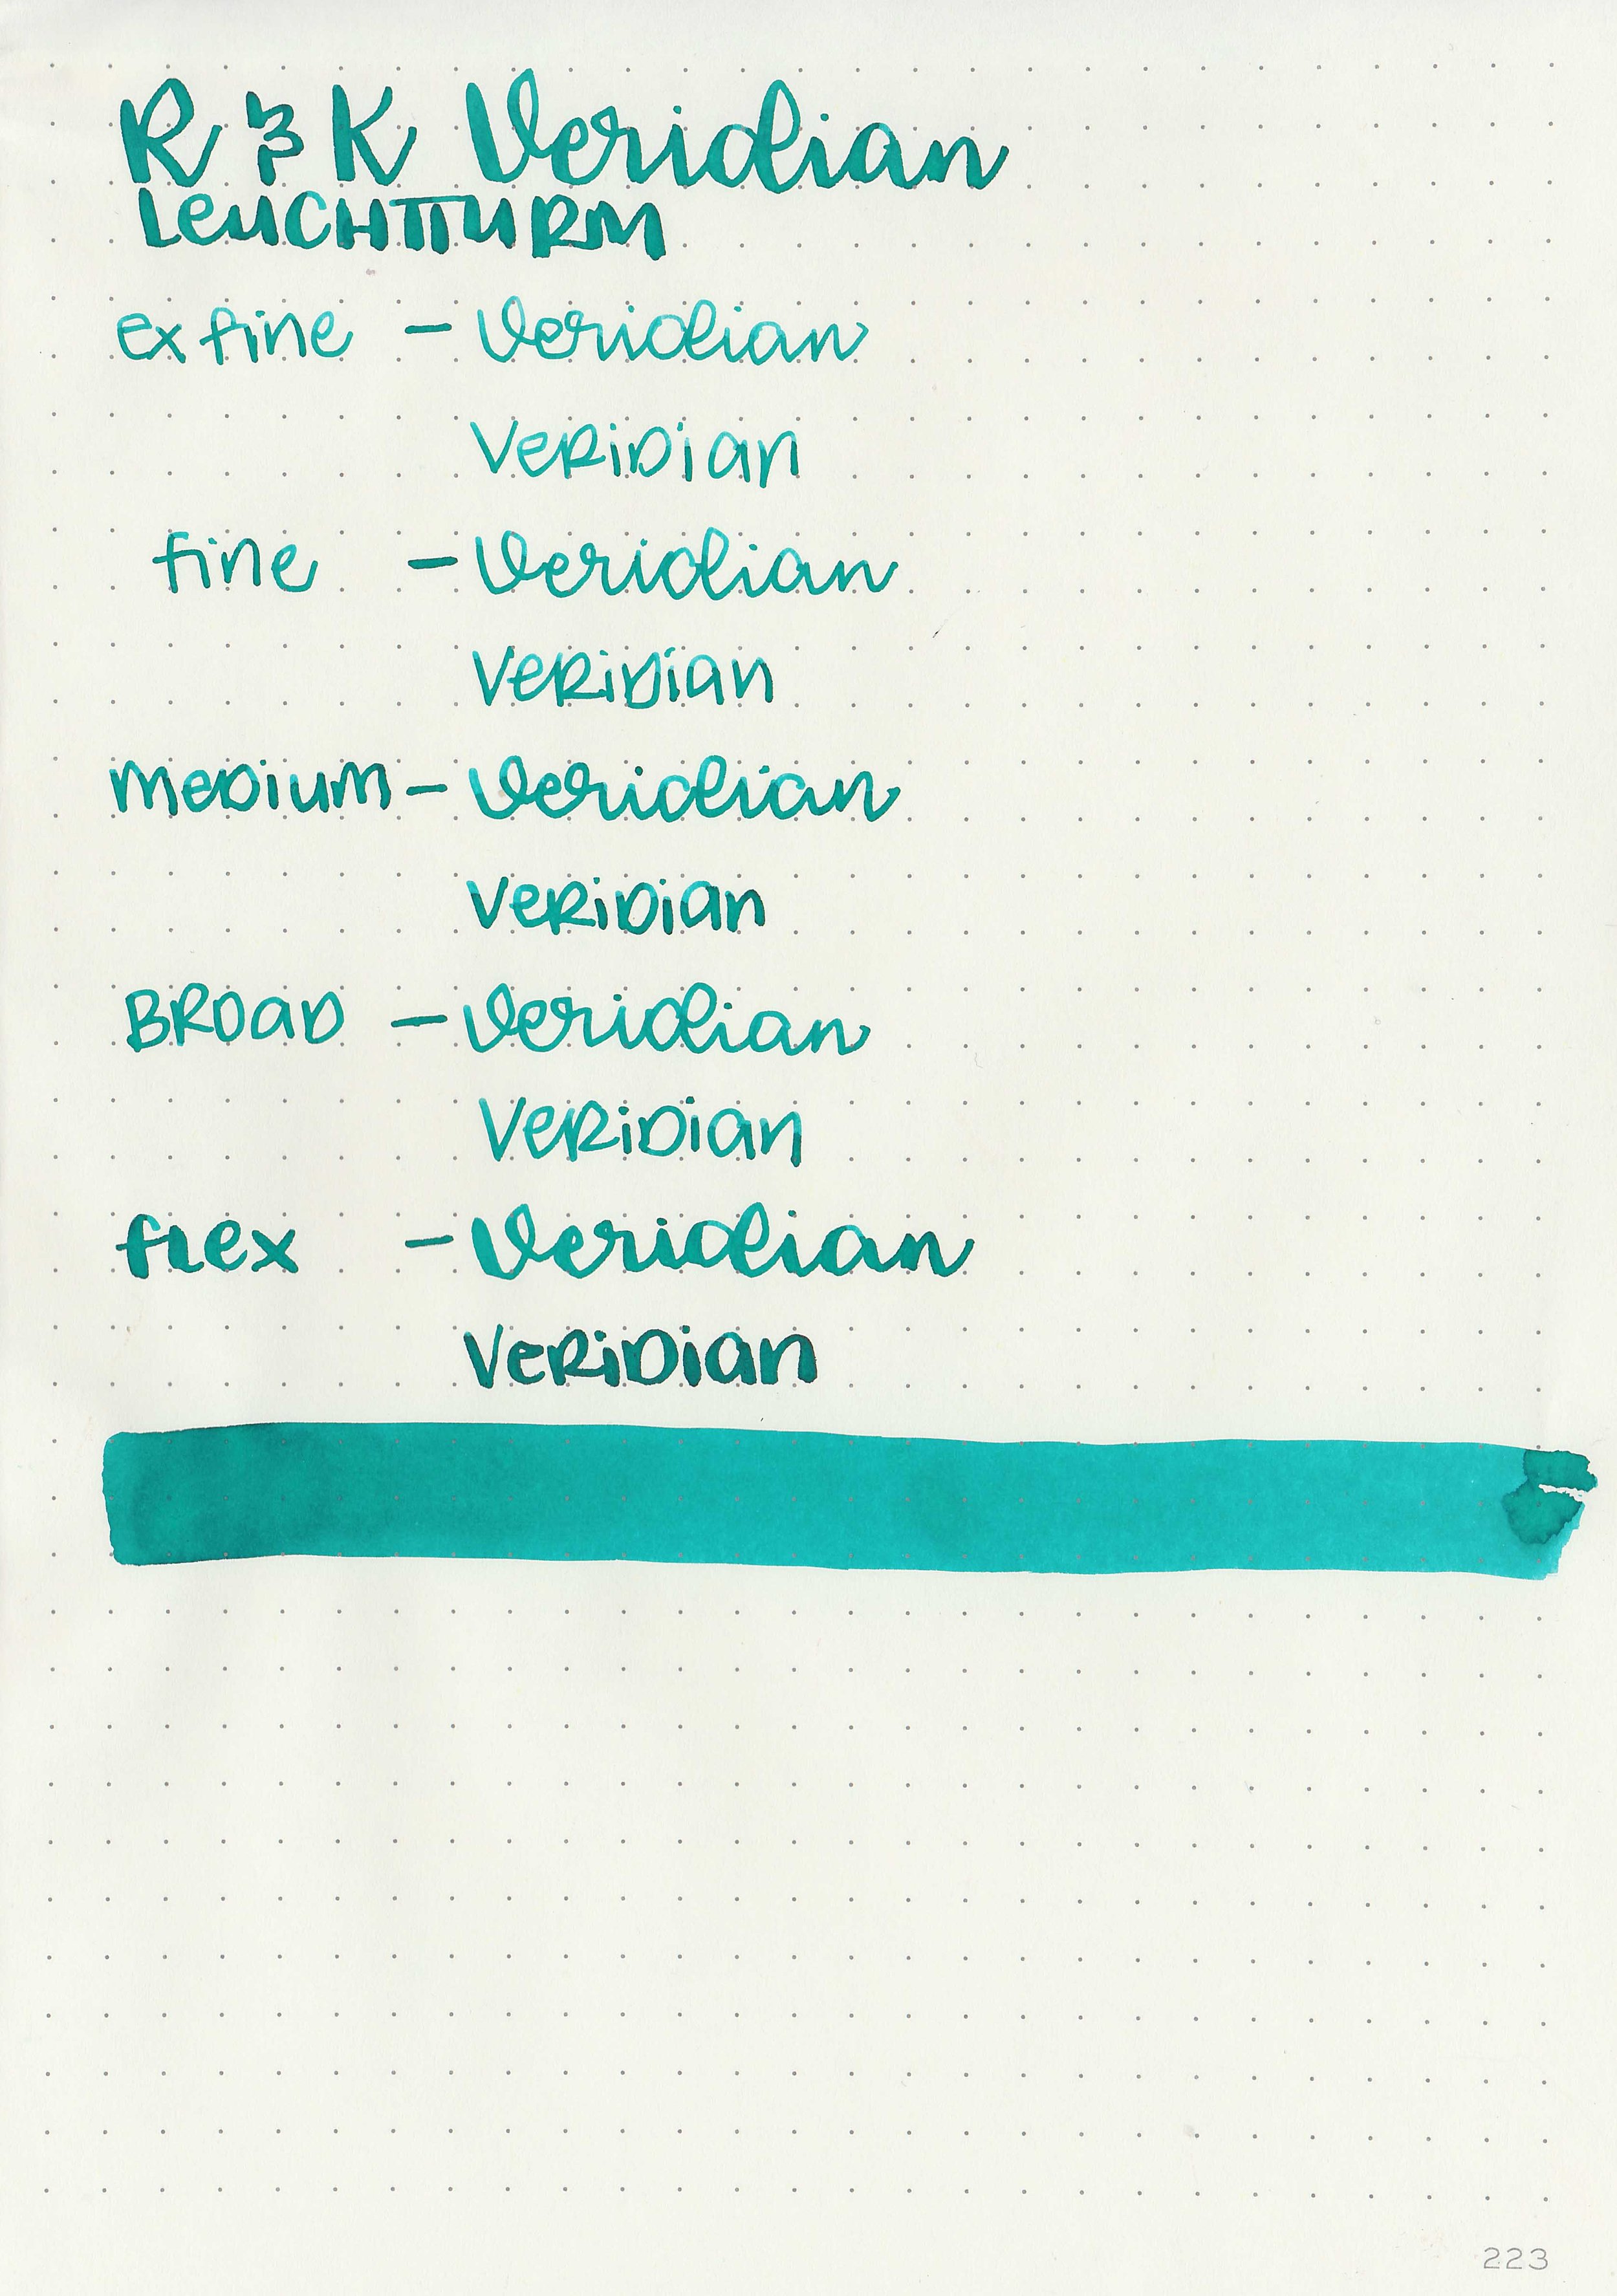 R & K Veridian
LEUCHTTURM
ex fine - Veridian
VeRiDian
fine - Veridian
VeRiDian
MeDium - Veridian
VeRiDian
BROaD - Veridian
VeRiDian
fLex - Veridian
VeRiDian
223